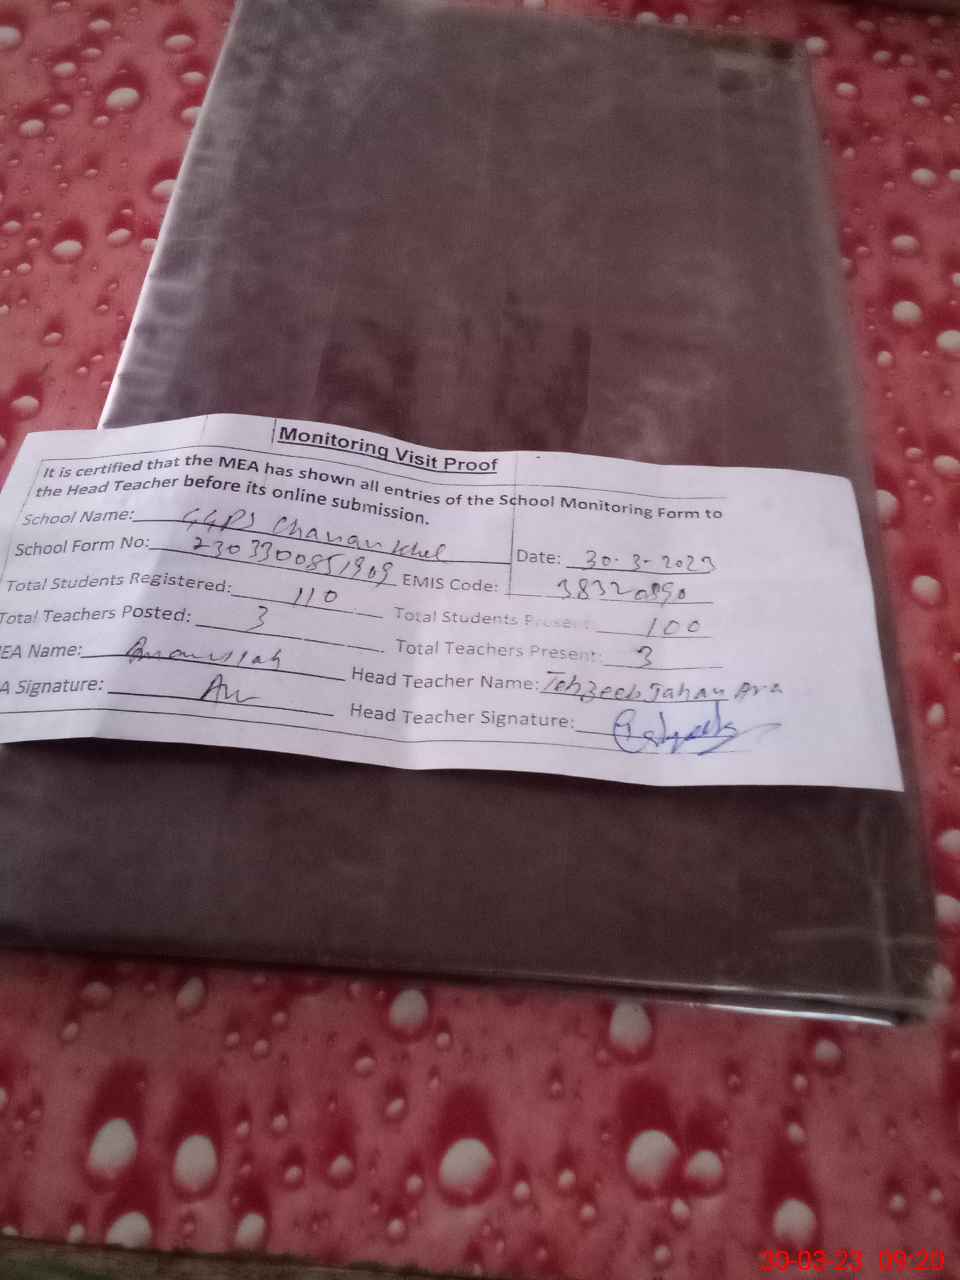 Monitoring Visit Proof
It is certified that the MEA has shown all entries of the School Monitoring Form to
the Head Teacher before its online submission.
School Name: GGPS Chanan Khel
School Form No: 2303300851909 Date: 30-3-2023
Total Students Registered: 110 EMIS Code: 38320890
Total Teachers Posted: 3 Total Students Present: 100
EA Name: Amanullah Total Teachers Present: 3
A Signature: Head Teacher Name: Tehzeeb Jahan Ara
Head Teacher Signature:
30-03-23 09:20